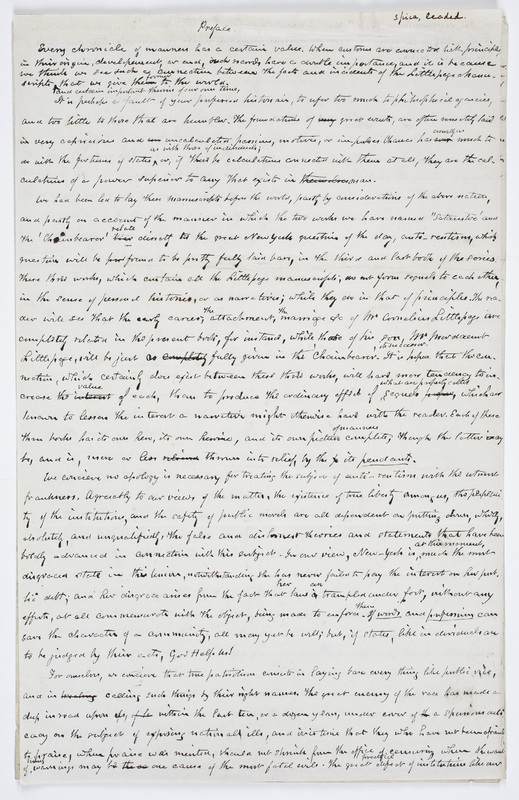 3 pica, leaded.
Preface.
Every chronicle of manners has a certain value. When customs are connected with principles,
in their origin, development, or end, such records have a double importance, and it is because
we think we see such a connection between the facts and incidents of the Littlepage manu-
scripts, and certain important theories of our own time, that we give them to the world.
It is perhaps a fault of your professed historian, to refer too much to philosophical agencies,
and too little to those that are humbler. The foundations of great events, are often remotely laid
in very capricious and uncalculated passions, motives, or impulses. Chance has usually as much to
do with the fortunes of states, as with those of individuals; or, if there be calculations connected with them at all, they are the cal-
culations of a power superior to any that exists in man.
We had been led to lay these manuscripts before the world, partly by considerations of the above nature,
and partly on account of the manner in which the two works we have named "Satanstoe" and
the "Chainbearer" relate directly to the great New York question of the day, anti-rentism, which
question will be found to be pretty fully laid bare, in the third and last book of the series.
These three works, which contain all the Littlepage manuscripts, do not form sequels to each other,
in the sense of personal histories, or as narratives; while they do in that of principles. The rea-
der will see that the early career, the attachment, the marriage &c of Mr Cornelius Littlepage are
completely related in the present book, for instance, while those of his son, Mr Mordaunt
Littlepage, will be just as fully given in the Chainbearer, its successor. It is hoped that the con-
nection, which certainly does exist between these three works, will have more tendency to in-
crease the value of each, than to produce the ordinary effect of what are properly called sequels, which are
known to lessen the interest a narrative might otherwise have with the reader. Each of these
three books has its own hero, its own heroine, and its own picture of manners complete; though the latter may
be, and is, more or less thrown into relief by its pendants.
We conceive no apology is necessary for treating the subject of anti-rentism with the utmost
frankness. Agreeably to our views of the matter, the existence of true liberty among us, the perpetui-
ty of the institutions, and the safety of public morals are all dependent on putting down, wholly,
absolutely, and unqualifiedly, the false and dishonest theories and statements that have been
boldly advanced in connection with this subject. In our view, New-York is, at this moment, much the most
disgraced state in the Union, notwithstanding she has never failed to pay the interest on her pub-
lic debt; and her disgrace arises from the fact that her laws are trampled under foot, without any
efforts, at all commensurate with the object, being made to enforce them. If words and professions can
save the character of a community, all may yet be well; but, if states, like individuals are
to be judged by their acts, God Help us!
For ourselves, we conceive that true patriotism consists in laying bare every thing like public vice,
and in calling such things by their right names. The great enemy of the race has made a
deep inroad upon us, within the last ten, or a dozen years, under cover of a spurious deli-
cacy on the subject of exposing national ills, and it is time that they who have not been afraid
to praise, when praise was merited, should not shrink from the office of censuring when the want
of timely warnings may be one cause of the most fatal evils. The great practical defect of institutions like our